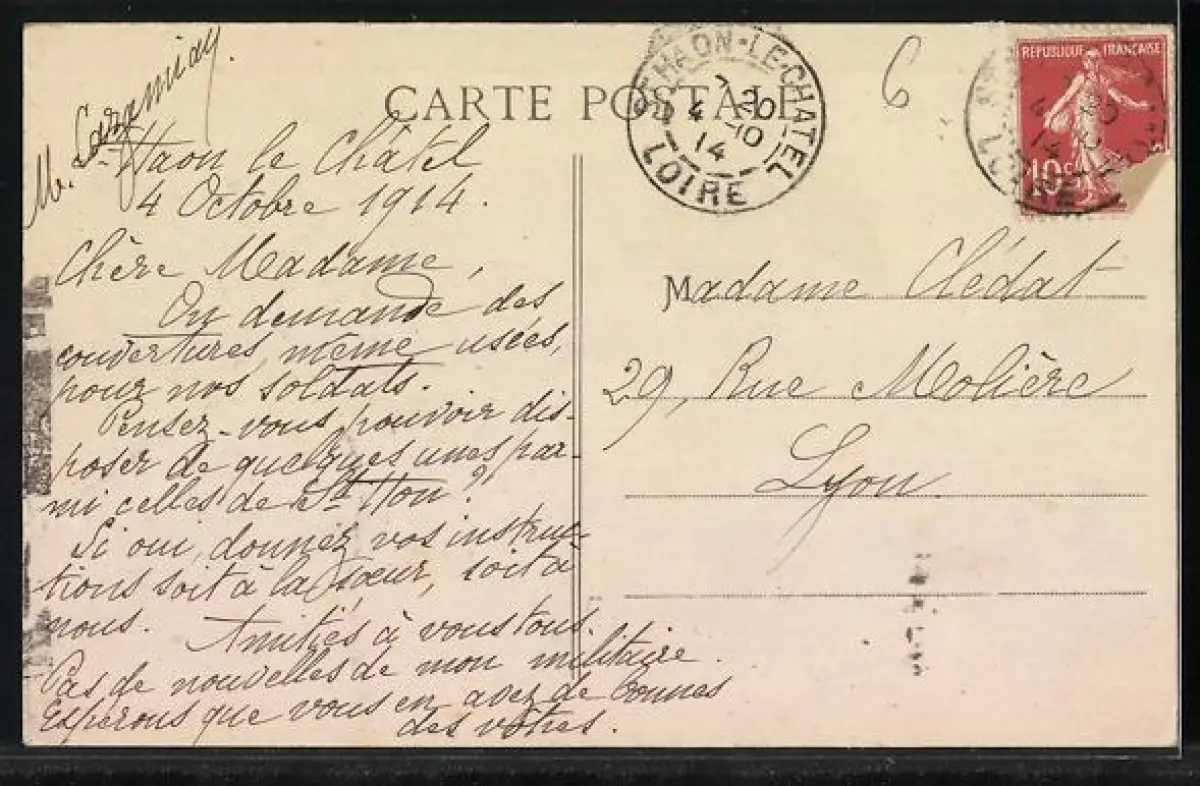 CARTE POSTALE
St HAON-LE-CHATEL
20
4 -10
14
LOIRE
6
REPUBLIQUE FRANÇAISE
10c
M.
St Haon le Châtel
4 Octobre 1914.
Chère Madame,
On demande des
couvertures, même usées,
pour nos soldats.
Pensez-vous pouvoir dis-
poser de quelques unes par-
mi celles de St Hon?
Si oui, donnez vos instruc-
tions soit à la sœur, soit à
nous.
Amitiés à vous tous
Pas de nouvelles de mon militaire.
Espérons que vous en avez de bonnes
des vôtres.
Madame Clédat
29, Rue Molière
Lyon